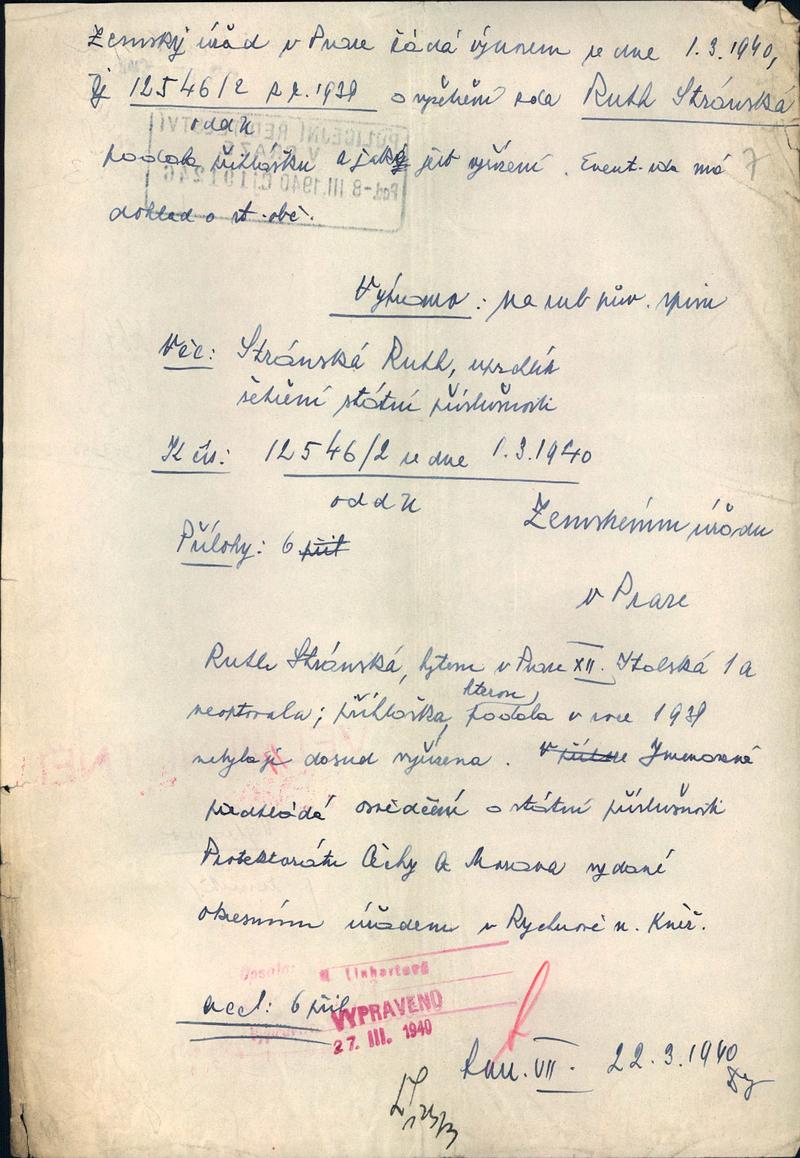 Zemský úřad v Praze žádá výnosem ze dne 1.3.1940,
čj 12546/2 z r. 1939 o vyšetření zda Ruth Stránská
odd
podala přihlášku a jaké jest vyřízení. Event. zda má
7
doklad o st. obč.
POLICEJNÍ ŘEDITELSTVÍ
V PRAZE
Pod. -8 III. 1940
Vypraveno: na rub pův. spisu
Věc: Stránská Ruth,
šetření státní příslušnosti
K čís: 12546/2 ze dne 1.3.1940
odd
Zemskému úřadu
Přílohy: 6 příl
v Praze
Ruth Stránská, bytem v Praze XII. Italská 1a
kterou
neoptovala; přihláška, podala v roce 1939
nebyla jí dosud vyřízena. Jmenovaná
předkládá osvědčení o státní příslušnosti
Protektorátu Čechy a Morava vydané
okresním úřadem v Rychnově n. Kněž.
Opsala: Linhartová
acl: 6 příl
VYPRAVENO
27. III. 1940
VII. 22.3.1940